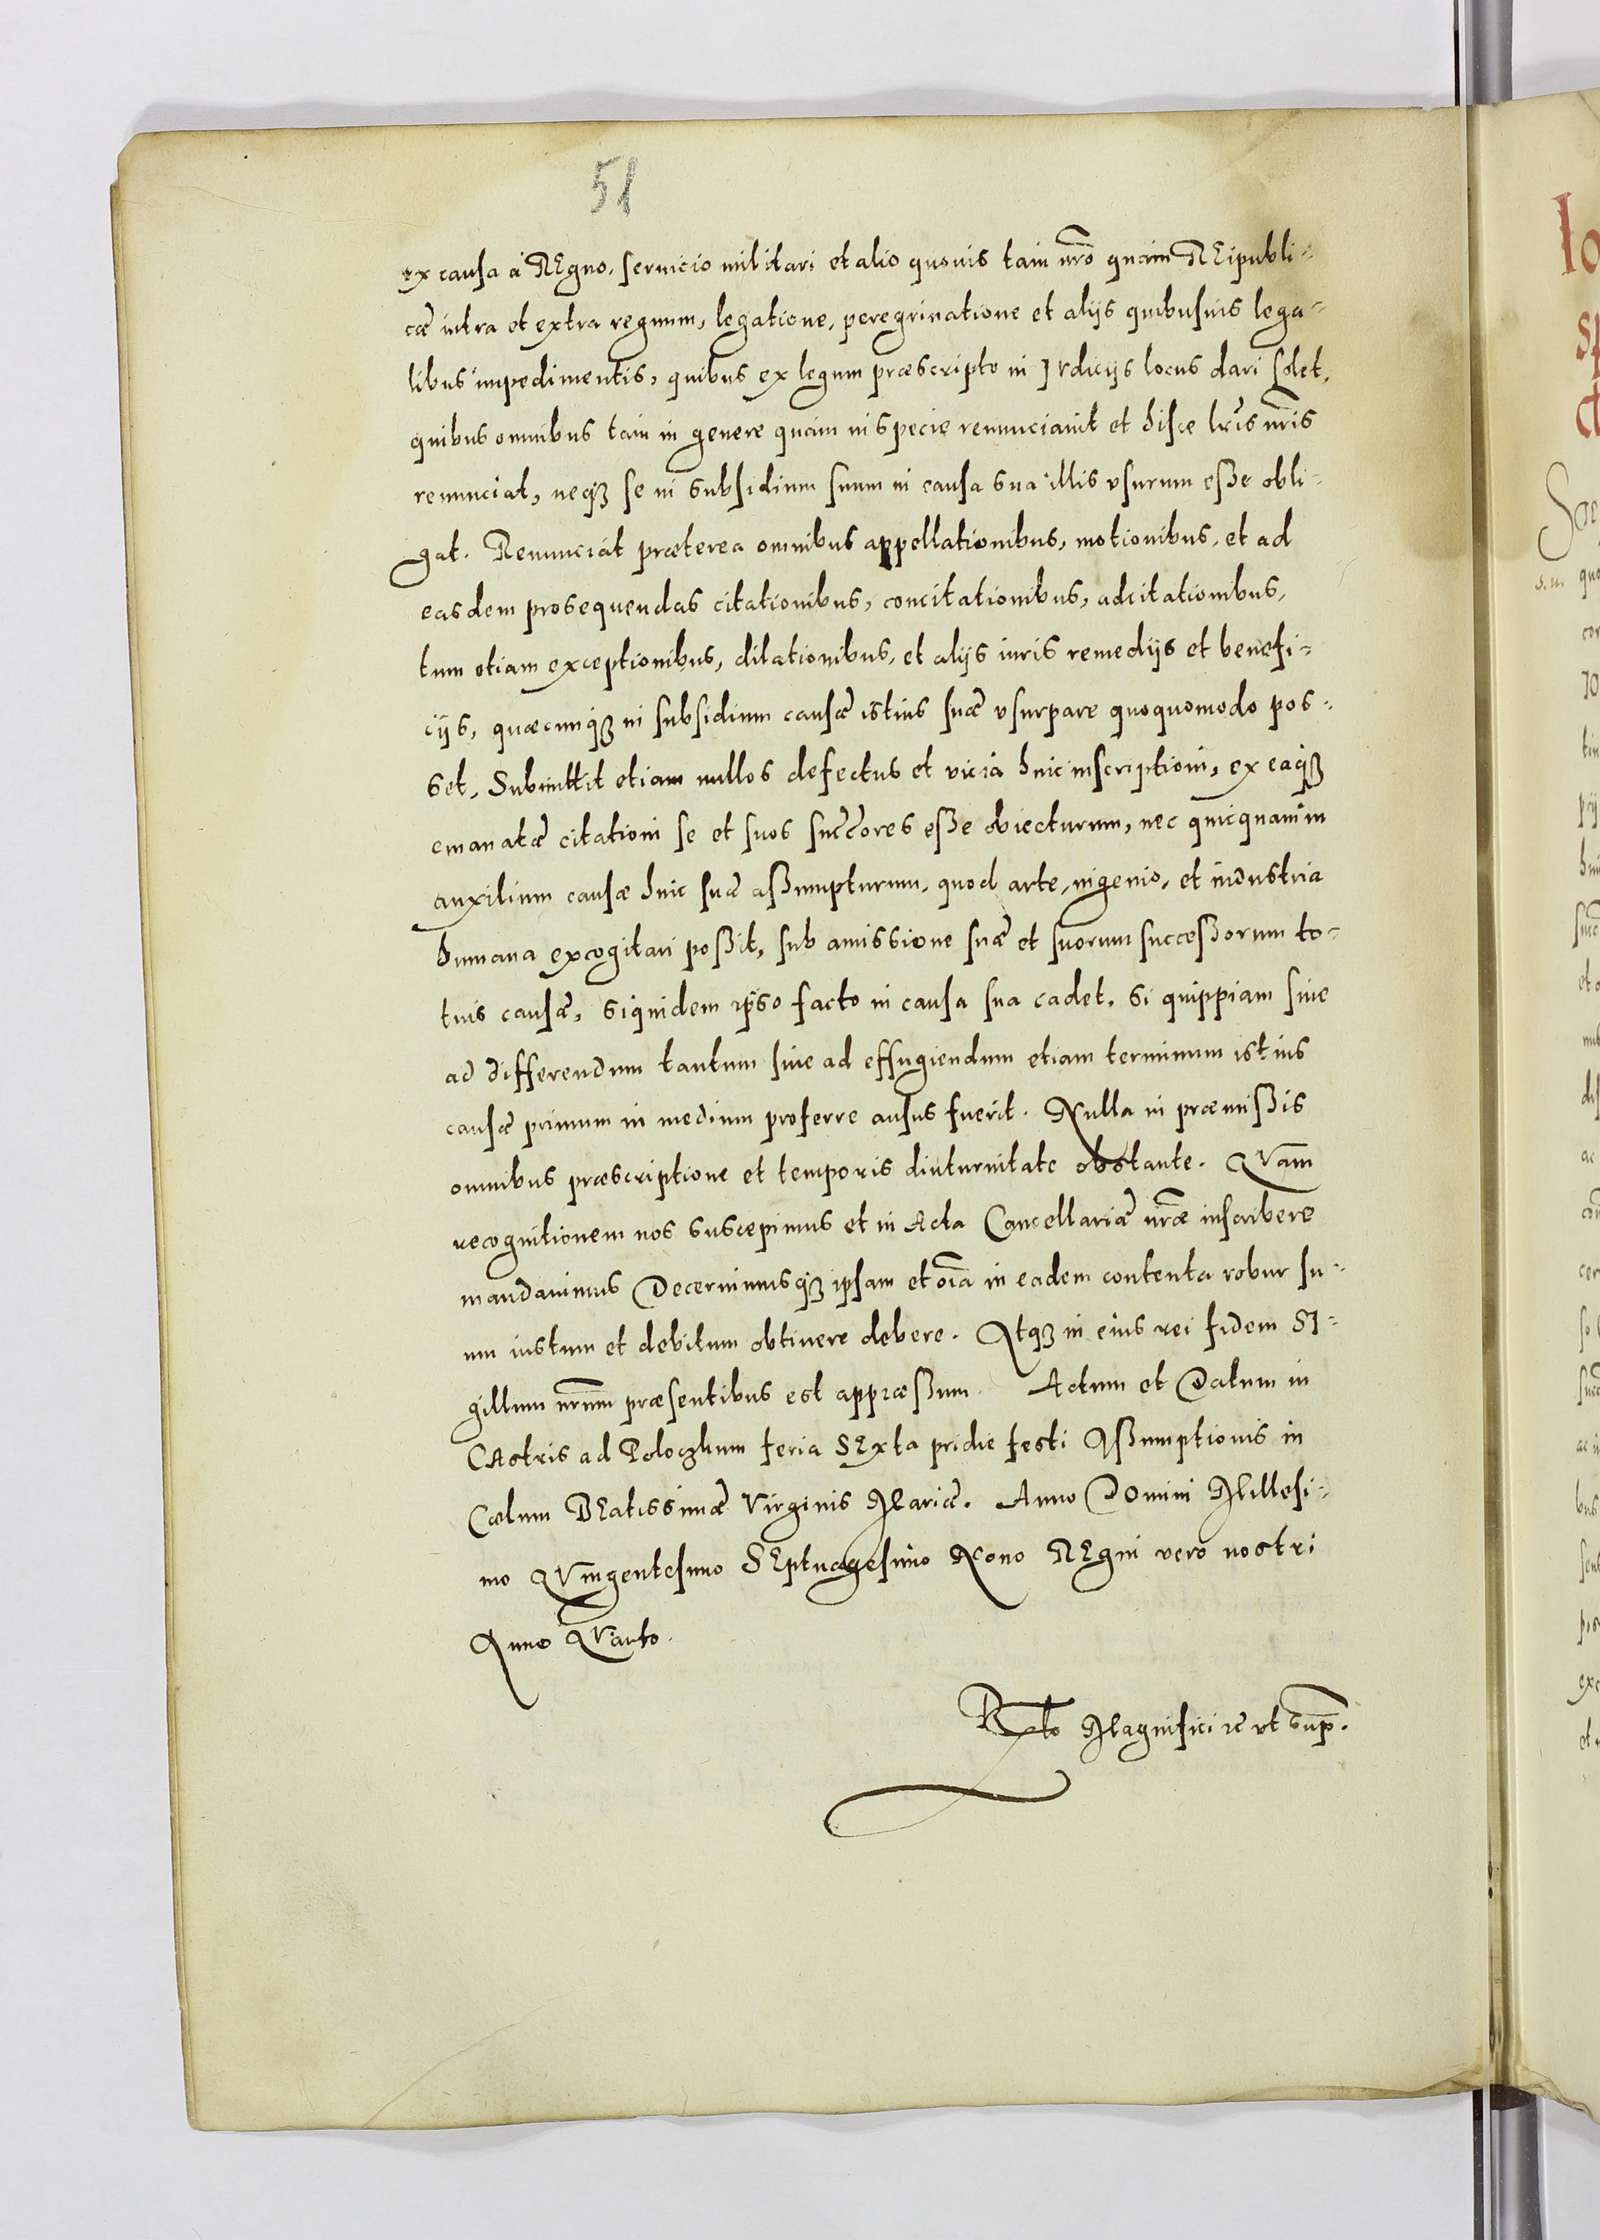 51
ex causa à REgno, seruicio militari et alio quouis tam nr̃o quàm REipubli-
cæ intra et extra regnum, legatione, peregrinatione et alijs quibusuis lega-
libus impedimentis, quibus ex legum præscripto in IVdicijs locus dari solet,
quibus omnibus tam in genere quàm in specie renunciauit et hisce lr̃is nr̃is
renunciat, neqꝫ se in subsidium suum in causa sua illis vsurum eße obli-
gat. Renunciat præterea omnibus appellationibus, motionibus, et ad
easdem prosequendas citationibus, concitationibus, adcitationibus,
tum etiam exceptionibus, dilationibus, et alijs iuris remedijs et benefi-
cijs, quæcunqꝫ in subsidium causæ istius suæ vsurpare quoquomodo pos-
set, Submittit etiam nullos defectus et vicia huic inscriptioni, ex eaqꝫ
emanatæ citationi se et suos succ̃ores eße obiecturum, nec quicquam in
auxilium causæ huic suæ aßumpturum, quod arte, ingenio, et industria
humana excogitari poßit, sub amissione suæ et suorum succeßorum to-
tius causæ, siquidem ipso facto in causa sua cadet, si quippiam siue
ad differendum tantum siue ad effugiendum etiam terminum istius
causæ primum in medium proferre ausus fuerit. Nulla in præmißis
omnibus præscriptione et temporis diuturnitate obstante. QVam
recognitionem nos suscepimus et in Acta Cancellariæ nr̃æ inscribere
mandauimus Decernimusqꝫ ipsam et oĩa in eadem contenta robur su-
um iustum et debitum obtinere debere. Atqꝫ in eius rei fidem SI-
gillum nr̃um præsentibus est appræßum. Actum et Datum in
CAstris ad Poloczkum feria SExta pridie festi Aßumptionis in
Cælum BEatissimæ Virginis Mariæ. Anno DOmini Millesi-
mo QVingentesimo SEptuagesimo Nono REgni vero nostri
Anno QVarto.
Rlto Magnifici ꝛc vt sup̃.